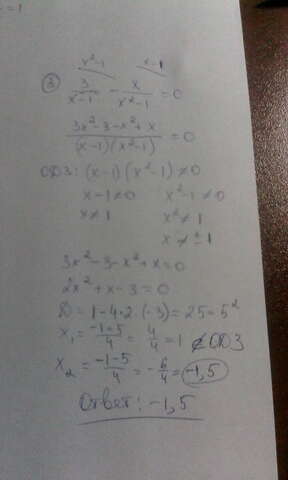 x²-1 x-1
③ 3/(x-1) - x/(x²-1) = 0
(3x²-3-x²+x)/((x-1)(x²-1)) = 0
ОДЗ: (x-1)(x²-1)≠0
x-1≠0 x²-1≠0
x≠1 x²≠1
x≠±1
3x²-3-x²+x=0
2x²+x-3=0
D=1-4·2·(-3)=25=5²
x₁=(-1+5)/4=4/4=1 ∉ОДЗ
x₂=(-1-5)/4=-6/4=-1,5
Ответ: -1,5